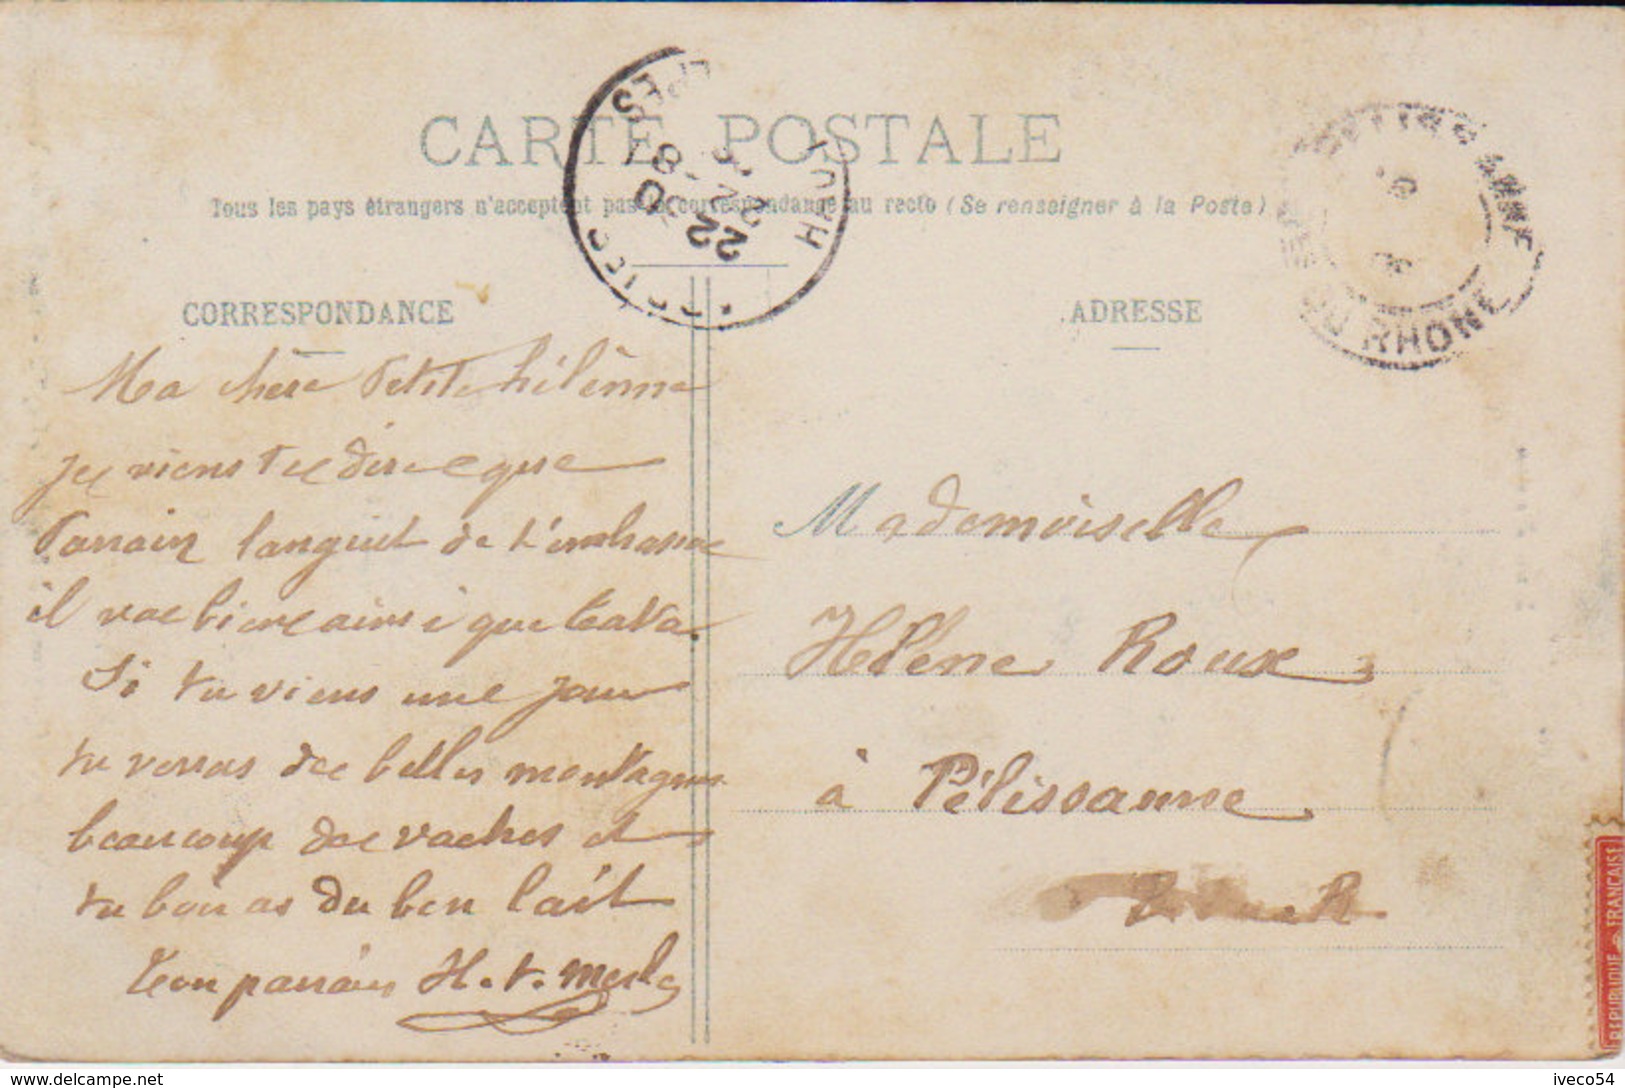 CARTE POSTALE
Tous les pays étrangers n'acceptent pas la correspondance au recto (Se renseigner à la Poste)
CORRESPONDANCE
Ma chère Petite hilènne
je viens te dire que
Parrain languit de t'embrasse
il vae biene ainsi que tata.
Si tu viens une jour
tu verras dee belles montagnes
beaucoup dee vaches et
tu boiras du bon lait
ton parrain H. t. Merle
ADRESSE
Mademoiselle
Hélène Roux
à Pélissanne
B du R
22
DU RHONE
REPUBLIQUE FRANÇAISE
iveco54
www.delcampe.net